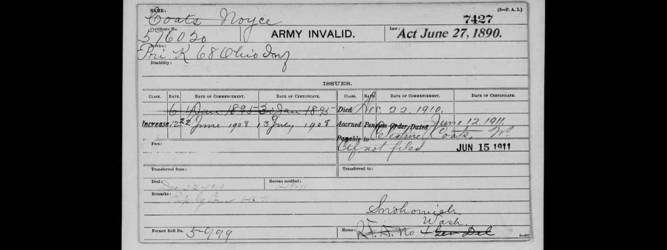 NAME: (3-P. A. I.)
Coats Noyce 7427
Certificate No. Law:
576020 ARMY INVALID. Act June 27, 1890.
Service:
Pri K 68 Ohio Inf
Disability:
ISSUES.
CLASS. RATE. DATE OF COMMENCEMENT. DATE OF CERTIFICATE. CLASS. RATE. DATE OF COMMENCEMENT. DATE OF CERTIFICATE.
6 1895 30 Jan 1895 Died Nov. 22, 1910,
Increase 12 June 1908 13 July 1908 Accrued Pension Order, Dated June 12, 1911
Payable to Coats, W
Fees: Clf not filed JUN 15 1911
Transferred from: Transferred to:
Died: Bureau notified:
Remarks:
Snohomish
Wash.
Former Roll No. 5-999 Home: R.F.D. No. 1 Gen Del